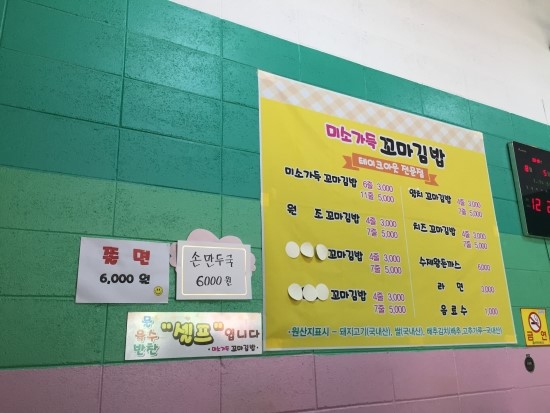 미소가득 꼬마김밥
테이크아웃 전문점
미소가득 꼬마김밥 6줄 3,000
11줄 5,000
원 조 꼬마김밥 4줄 3,000
7줄 5,000
꼬마김밥 4줄 3,000
7줄 5,000
꼬마김밥 4줄 3,000
7줄 5,000
참치 꼬마김밥 4줄 3,000
7줄 5,000
치즈 꼬마김밥 4줄 3,000
7줄 5,000
수제왕돈까스 6,000
라 면 3,000
음료수 1,000
·원산지표시 - 돼지고기(국내산), 쌀(국내산), 배추김치(배추 고추가루-국내산)
쫄 면
6,000 원
손만두국
6000 원
물
육수
반찬
"셀프"입니다
·미소가득 꼬마김밥·
금연